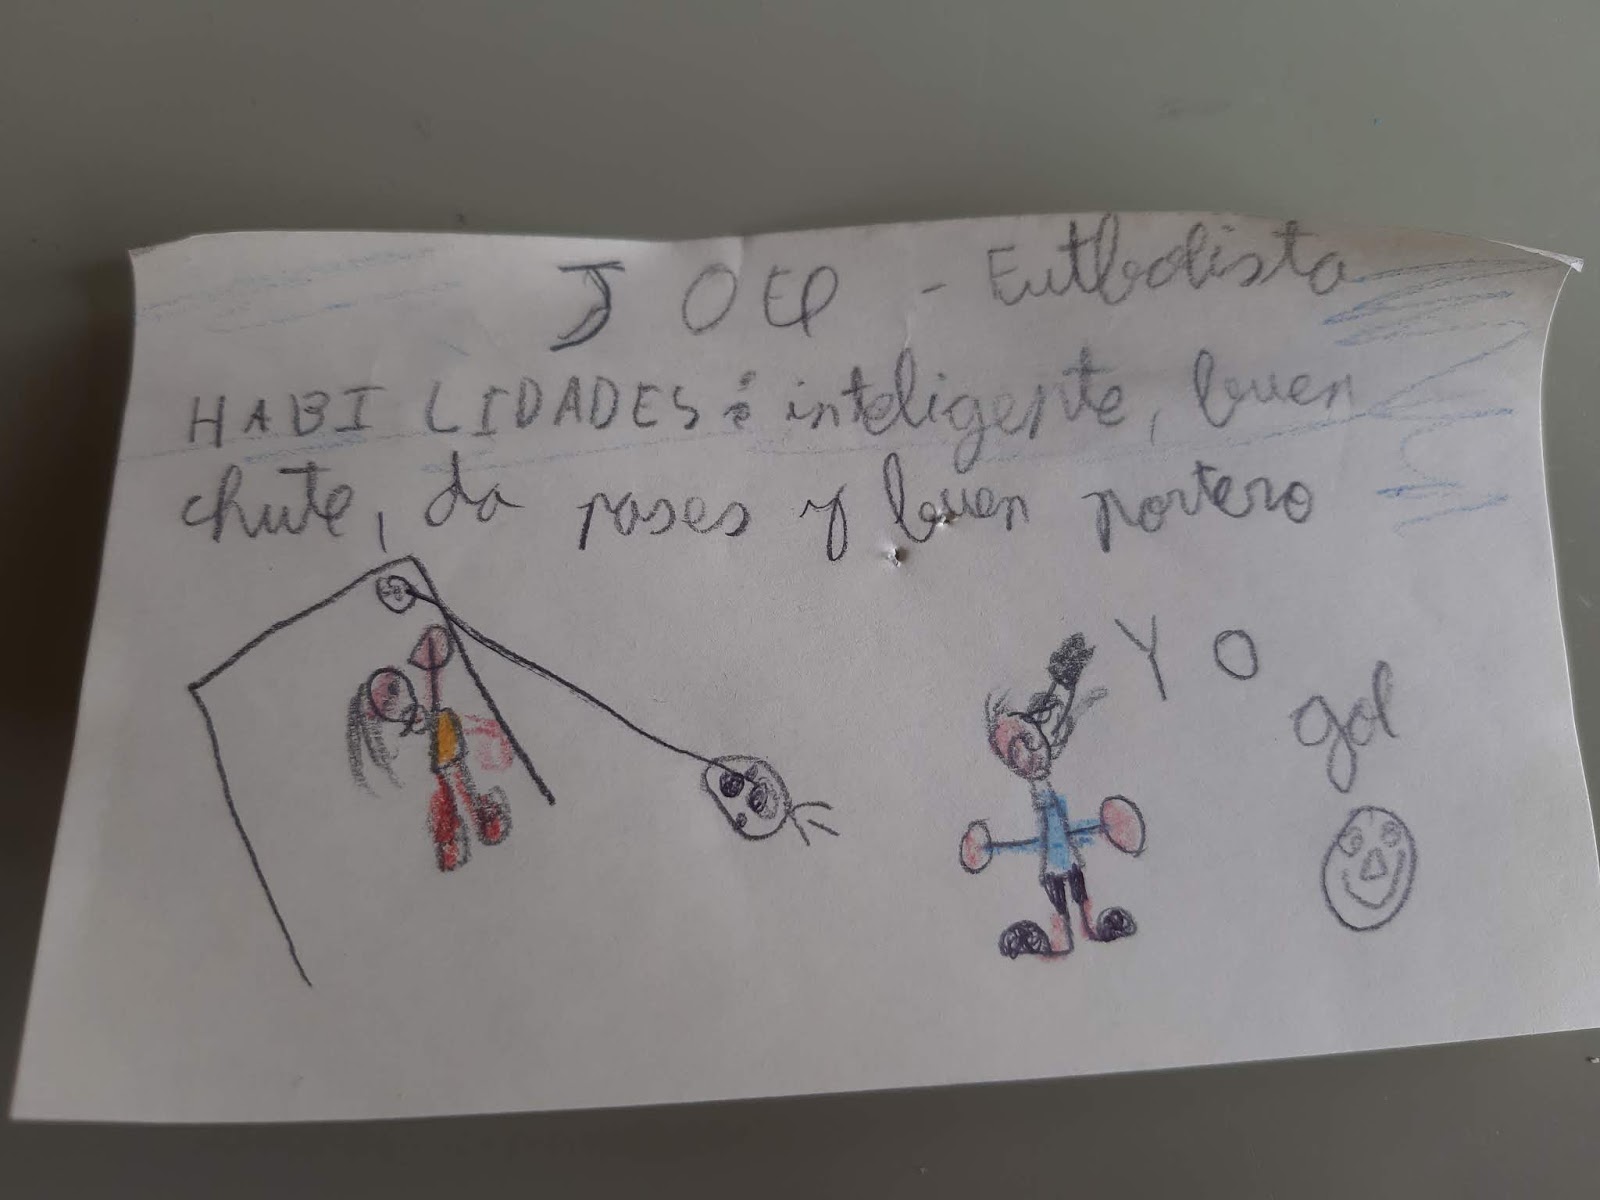 JOEL - Futbolista
HABILIDADES: inteligente, buen
chute, da pases y buen portero
YO
gol